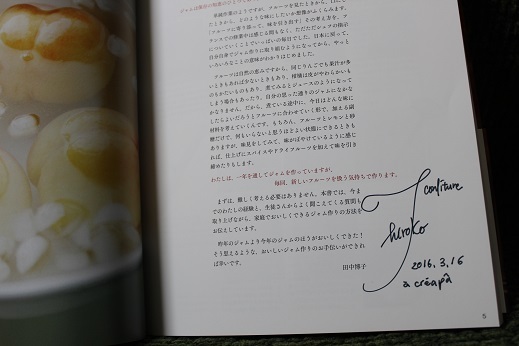 単純作業のようですが、フルーツを見たときから、口にし
たときから、どのような味にしたいか想像がふくらみます。
「フルーツに寄り添って、味を引き出す」その考え方を、フ
ランスでの修業中は感じる間もなく、ただただシェフの指示
についていくことでいっぱいの毎日でした。日本に戻って、
自分自身でジャム作りに取り組むようになってから、やっと
いろいろなことの意味がわかりはじめました。
フルーツは自然の恵みですから、同じりんごでも果汁が多
いときもあれば少ないときもあり、柑橘は皮がやわらかいも
のもかたいものもあり、煮てみるとジュースのようになって
しまう場合もあったり、自分の思った通りのジャムになかな
かなりません。だから、煮ている途中に、今日はどんな味に
したらよいだろうとフルーツに合わせていく形で、加える副
材料を考えていくんです。もちろん、フルーツとレモンと砂
糖だけで、何もいらないと思うほどよい状態にできるときも
ありますが、味見をしてみて、味がぼやけているように感じ
れば、仕上げにスパイスやドライフルーツを加えて味を引き
締めたりもします。
わたしは、一年を通してジャムを作っていますが、
毎回、新しいフルーツを扱う気持ちで作ります。
まずは、難しく考える必要はありません。本書では、今ま
でのわたしの経験と、生徒さんからよく聞こえてくる質問も
取り上げながら、家庭でおいしくできるジャム作りの方法を
お伝えしています。
昨年のジャムより今年のジャムのほうがおいしくできた!
そう思えるような、おいしいジャム作りのお手伝いができれ
ば幸いです。
田中博子
confiture
hiroko
2016.3.16
à créapâ
5